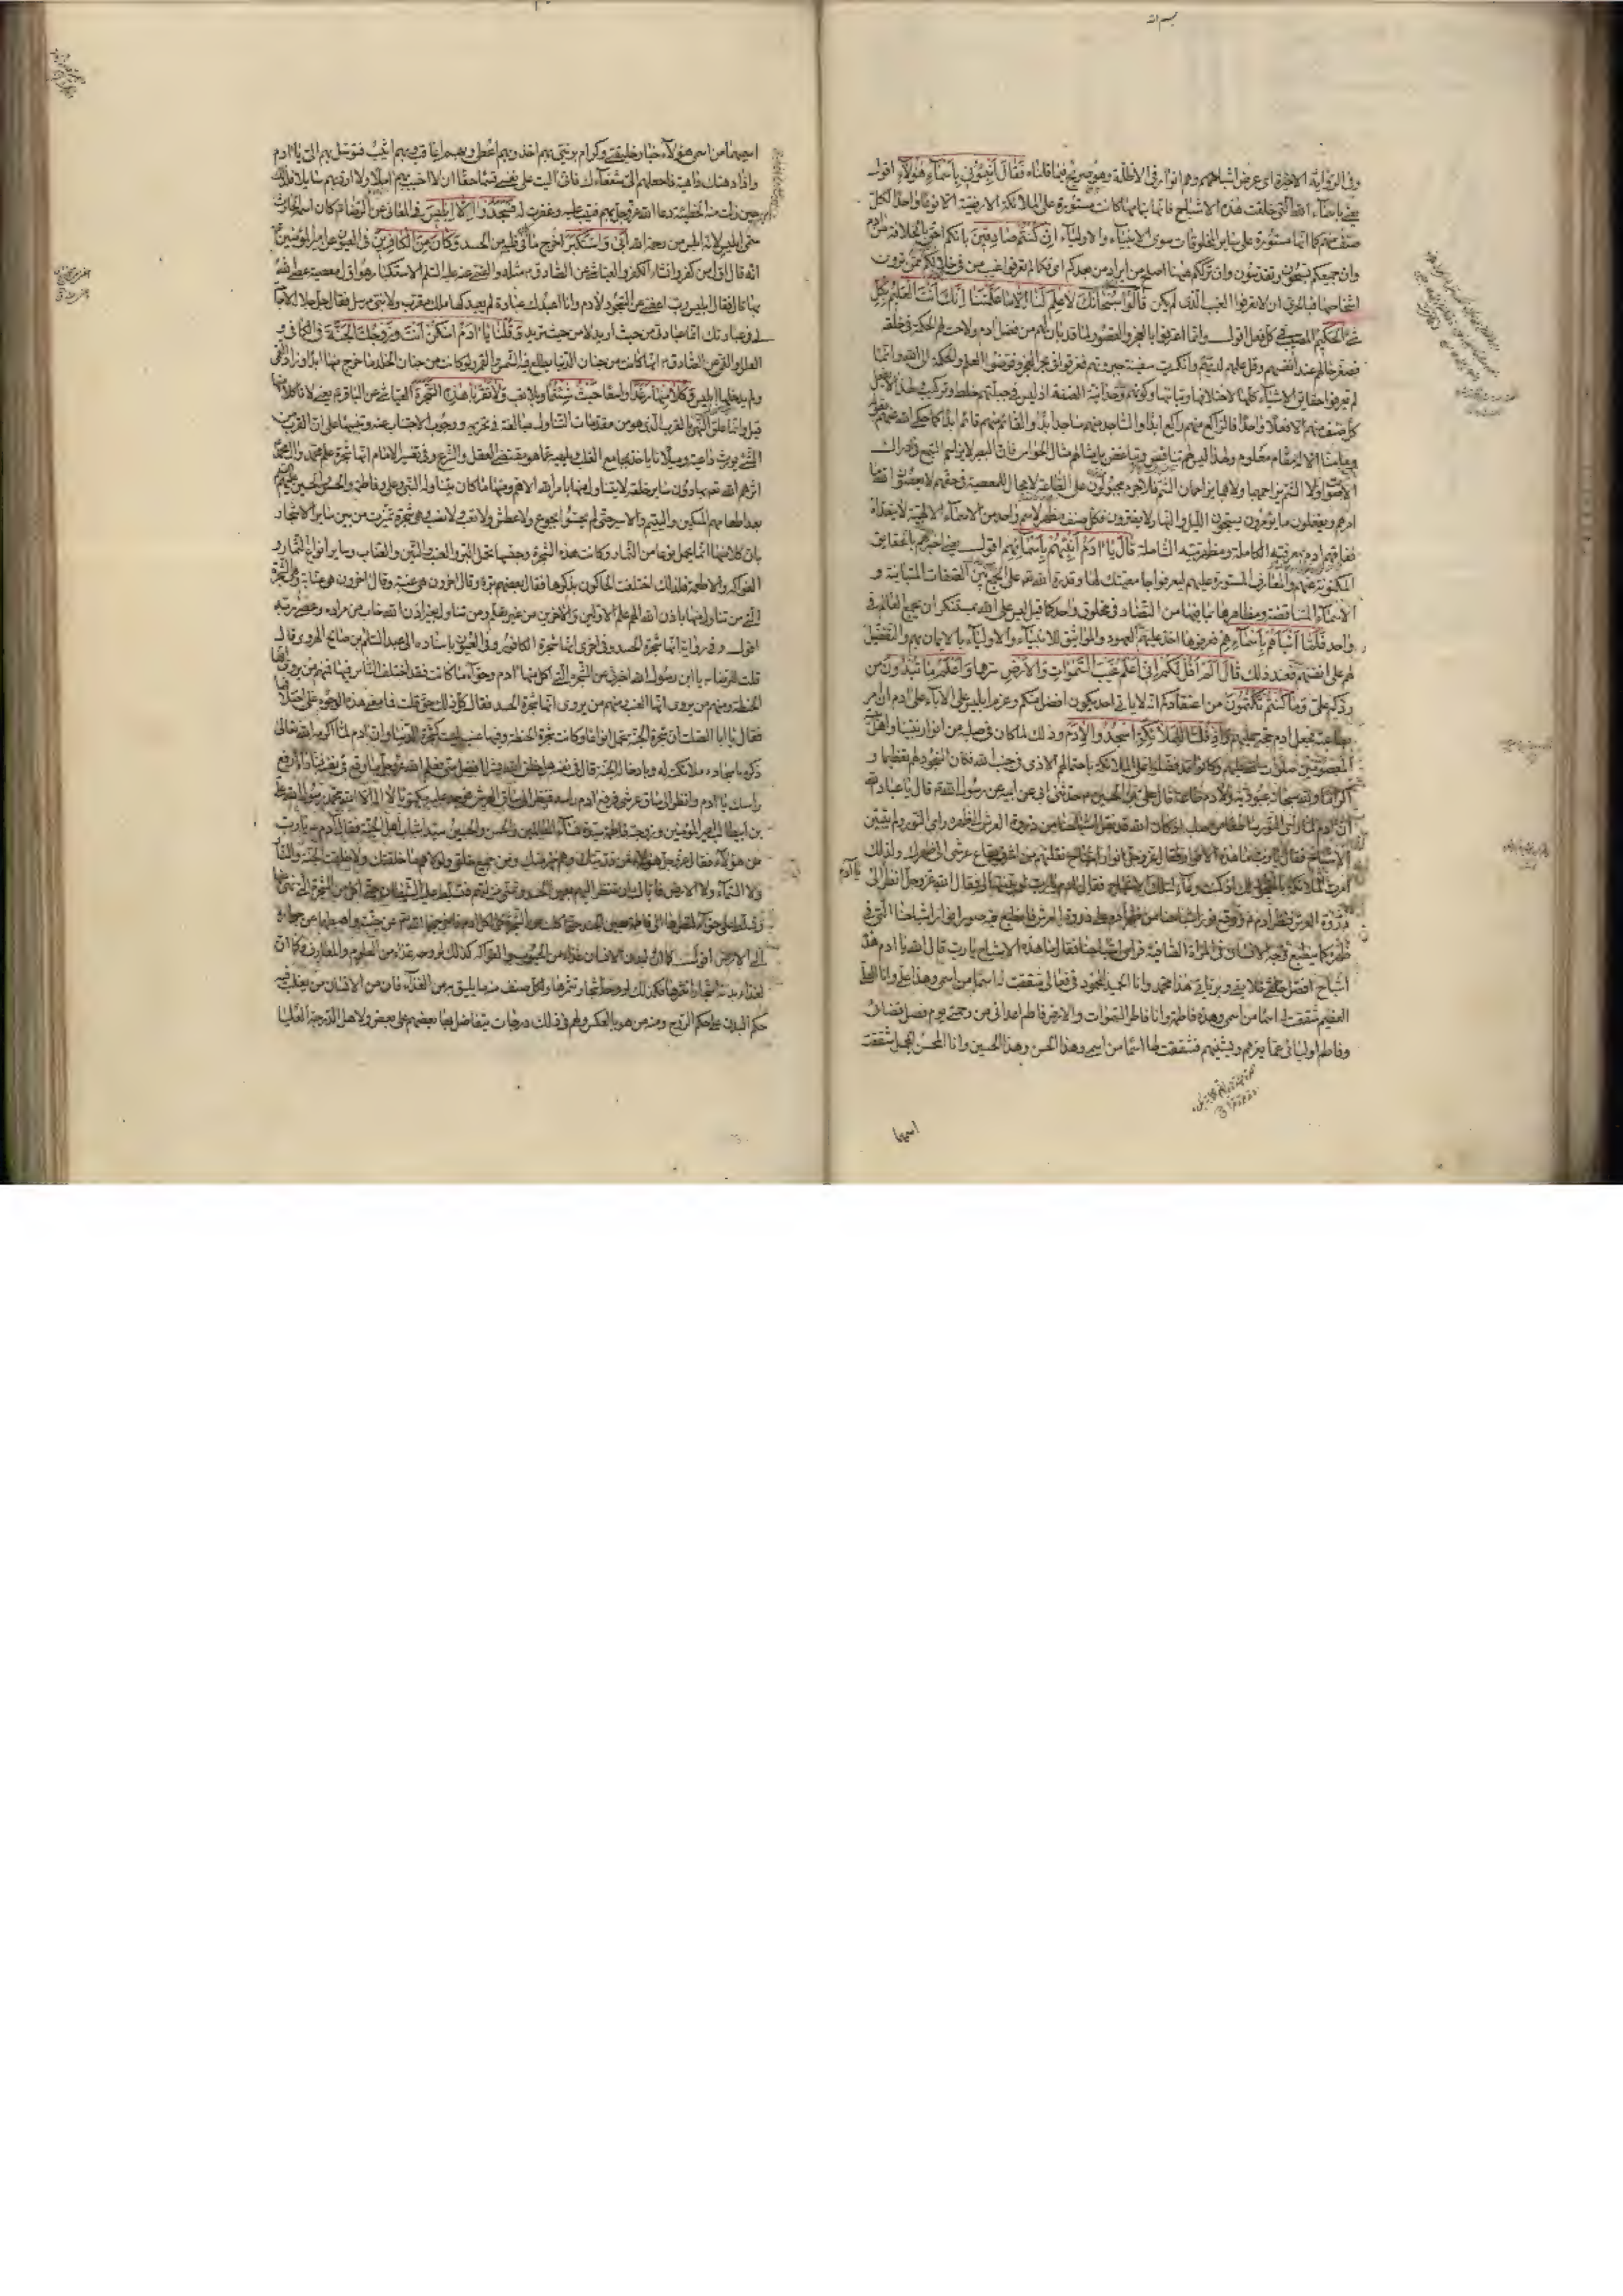 بسم الله
وفي الرواية الاخيرة اي عرض اشباحهم وهم انوار في الاظلة وهو صريح فيما قلناه فَقَالَ أَنْبِئُونِي بِأَسْمَاءِ هَؤُلَاءِ اقول
يعني باسماء الله التي خلقت هذه الاشباح فانها بتمامها كانت مستورة على الملائكة الارضية الا نوعا واحدا لكل
صنف منهم كما انها مستورة على سائر المخلوقات سوى الانبياء والاولياء إِنْ كُنْتُمْ صَادِقِينَ بانكم احق بالخلافة من ادم
وان جميعكم تسبحون وتقدسون وان ترككم ههنا اصلح من ايراد من بعدكم اي فكما لم تعرفوا غيب من في خلالكم ممن ترون
اشخاصها فبالحري ان لا تعرفوا الغيب الذي لم يكن قَالُوا سُبْحَانَكَ لَا عِلْمَ لَنَا إِلَّا مَا عَلَّمْتَنَا إِنَّكَ أَنْتَ الْعَلِيمُ بكل
شيء الْحَكِيمُ المصيب في كل فعل اقول وانما اعترفوا بالعجز والقصور لما قد بان لهم من فضل ادم ولاحت لهم الحكمة في خلقه
فصغر حالهم عند انفسهم وقل علمهم لديهم وانكسرت سفينة جبروتهم فغرقوا في بحر العجز وفوضوا العلم والحكمة الى الله وانما
لم يعرفوا حقايق الاشياء كلها لاختلافها وتباينها وكونهم وحدانية الصفة اذ ليس في جبلتهم خلط وتركيب ولهذا لا يفعل
كل صنف منهم الا فعلا واحدا فالراكع منهم راكع ابدا والساجد منهم ساجد ابدا والقائم منهم قائم ابدا كما حكى الله عنهم بقوله
وما منا الا له مقام معلوم ولهذا ليس لهم تنافس وتباغض بل مثالهم مثال الحواس فان البصر لا يزاحم السمع في ادراك
الاصوات ولا الشم يزاحمها ولا هما يزاحمان الشم فلا جرم مجبولون على الطاعة لا مجال للمعصية في حقهم لا يعصون الله ما
امرهم ويفعلون ما يؤمرون يسبحون الليل والنهار لا يفترون فكل صنف منهم مظهر لاسم واحد من الاسماء الالهية لا يتعداه
ففاقهم ادم بمعرفته الكاملة ومظهريته الشاملة قَالَ يَا آدَمُ أَنْبِئْهُمْ بِأَسْمَائِهِمْ اقول يعني اخبرهم بالحقايق
المكنونة عنهم والمعارف المستورة عليهم ليعرفوا جامعيتك لها وقدرة الله تعالى على الجمع بين الصفات المتباينة و
الاسماء المتناقضة ومظاهرها بما فيها من التضاد في مخلوق واحد كما قيل ليس على الله بمستنكر ان يجمع العالم في
واحد فَلَمَّا أَنْبَأَهُمْ بِأَسْمَائِهِمْ فعرفوها اخذ عليهم العهود والمواثيق للانبياء والاولياء بالايمان بهم والتفضيل
لهم على انفسهم فعند ذلك قَالَ أَلَمْ أَقُلْ لَكُمْ إِنِّي أَعْلَمُ غَيْبَ السَّمَوَاتِ وَالْأَرْضِ سرها وَأَعْلَمُ مَا تُبْدُونَ من
ردكم علي وَمَا كُنْتُمْ تَكْتُمُونَ من اعتقادكم انه لا ياتي احد يكون افضل منكم وعزم ابليس على الاباء على ادم ان امر
بطاعته فجعل ادم حجة عليهم وَإِذْ قُلْنَا لِلْمَلَائِكَةِ اسْجُدُوا لِآدَمَ وذلك لما كان في صلبه من انوار نبينا واهل بيته
المعصومين صلوات الله عليهم وكانوا قد فضلوا على الملائكة باحتمالهم الاذى في جنب الله فكان السجود لهم تعظيما و
اكراما ولله سبحانه عبودية ولادم طاعة قال علي بن الحسين م حدثني ابي عن ابيه عن رسول الله ص قال يا عباد الله
ان ادم لما راى النور ساطعا من صلبه اذ كان الله قد نقل اشباحنا من ذروة العرش الى ظهره راى النور ولم يتبين
الاشباح فقال يا رب ما هذه الانوار فقال عز وجل انوار اشباح نقلتهم من اشرف بقاع عرشي الى ظهرك ولذلك
امرت الملائكة بالسجود لك اذ كنت وعاء لتلك الاشباح فقال ادم يا رب لو بينتها لي فقال الله عز وجل انظر يا ادم الى
ذروة العرش فنظر ادم ع ووقع نور اشباحنا من ظهر ادم على ذروة العرش فانطبع فيه صور انوار اشباحنا التي في
ظهره كما ينطبع وجه الانسان في المرآة الصافية فراى اشباحنا فقال ما هذه الاشباح يا رب قال الله يا ادم هذه
اشباح افضل خلائقي وبرياتي هذا محمد وانا الحميد المحمود في فعالي شققت له اسما من اسمي وهذا علي وانا العلي
العظيم شققت له اسما من اسمي وهذه فاطمة وانا فاطر السموات والارض فاطم اعدائي من رحمتي يوم فصل قضائي
وفاطم اوليائي عما يعرهم ويشينهم فشققت لها اسما من اسمي وهذا الحسن وهذا الحسين وانا المحسن المجمل شققت
اسمهما
اسميهما من اسمي هؤلاء خيار خليقتي وكرام بريتي بهم اخذ وبهم اعطي وبهم اعاقب وبهم اثيب فتوسل بهم الي يا ادم
واذا دهتك داهية فاجعلهم الي شفعاءك فاني اليت على نفسي قسما حقا ان لا اخيب بهم املا ولا ارد بهم سائلا فلذلك
حين زلت منه الخطيئة دعا الله عز وجل بهم فتيب عليه وغفرت له فَسَجَدُوا إِلَّا إِبْلِيسَ في المعاني عن الرضا ع كان اسمه الحارث
سمي ابليس لانه ابلس من رحمة الله أَبَى وَاسْتَكْبَرَ اخرج ما في قلبه من الحسد وَكَانَ مِنَ الْكَافِرِينَ في العيون عن امير المؤمنين ع
انه قال اول من كفر وانشا الكفر والعياشي عن الصادق ع مثله والقمي عنه عليه السلام الاستكبار هو اول معصية عصي الله
بها قال فقال ابليس رب اعفني من السجود لادم وانا اعبدك عبادة لم يعبدكها ملك مقرب ولا نبي مرسل فقال جل جلاله لا حاجة
لي في عبادتك انما عبادتي من حيث اريد لا من حيث تريد وَقُلْنَا يَا آدَمُ اسْكُنْ أَنْتَ وَزَوْجُكَ الْجَنَّةَ في الكافي و
العلل والقمي عن الصادق ع انها كانت من جنان الدنيا يطلع فيه الشمس والقمر ولو كانت من جنان الخلد ما خرج منها ابدا وزاد القمي
ولم يدخلها ابليس وَكُلَا مِنْهَا رَغَدًا واسعا حَيْثُ شِئْتُمَا بلا تعب وَلَا تَقْرَبَا هَذِهِ الشَّجَرَةَ العياشي عن الباقر ع يعني لا تاكلا منها
قيل وانما علق النهي بالقرب الذي هو من مقدمات التناول مبالغة في تحريمه ووجوب الاجتناب عنه وتنبيها على ان القرب من
الشيء يورث داعية وميلا ما ياخذ بمجامع القلب ويلهيه عما هو مقتضى العقل والشرع وفي تفسير الامام انها شجرة علم محمد وال محمد
اثرهم الله تعالى بها دون سائر خلقه لا يتناول منها بامر الله الا هم ومنها ما كان يتناوله النبي وعلي وفاطمة والحسن والحسين عليهم
بعد اطعامهم المسكين واليتيم والاسير حتى لم يحسوا بجوع ولا عطش ولا تعب ولا نصب وهي شجرة تميزت من بين سائر الاشجار
بان كلا منها انما يحمل نوعا من الثمار وكانت هذه الشجرة وجنسها تحمل البر والعنب والتين والعناب وسائر انواع الثمار و
الفواكه والاطعمة فلذلك اختلفت الحاكون بذكرها فقال بعضهم برة وقال اخرون هي عنبة وقال اخرون هي عنابة وهي الشجرة
التي من تناول منها باذن الله الهم علم الاولين والاخرين من غير تعلم ومن تناول بغير اذن الله خاب من مراده وعصى ربه
اقول وفي رواية انها شجرة الحسد وفي اخرى انها شجرة الكافور وفي العيون باسناده الى عبد السلم بن صالح الهروي قال
قلت للرضا ع يا ابن رسول الله اخبرني عن الشجرة التي اكل منها ادم وحواء ما كانت فقد اختلف الناس فيها فمنهم من يروي انها
الحنطة ومنهم من يروي انها العنب ومنهم من يروي انها شجرة الحسد فقال كل ذلك حق قلت فما معنى هذه الوجوه على اختلافها
فقال يا ابا الصلت ان شجرة الجنة تحمل انواعا وكانت شجرة الحنطة وفيها عنب ليست كشجرة الدنيا وان ادم لما اكرمه الله تعالى
ذكره باسجاده ملائكته له وبادخاله الجنة قال في نفسه هل خلق الله بشرا افضل مني فعلم الله عز وجل ما وقع في نفسه فناداه ارفع
راسك يا ادم وانظر الى ساق عرشي فرفع ادم راسه فنظر الى ساق العرش فوجد عليه مكتوبا لا اله الا الله محمد رسول الله علي
بن ابيطالب امير المؤمنين وزوجته فاطمة سيدة نساء العالمين والحسن والحسين سيدا شباب اهل الجنة فقال ادم ع يا رب
من هؤلاء فقال عز وجل هؤلاء من ذريتك وهم خير منك ومن جميع خلقي ولولاهم ما خلقتك ولا خلقت الجنة والنار
ولا السماء ولا الارض فاياك ان تنظر اليهم بعين الحسد وتمنى منزلتهم فتسلط عليه الشيطان حتى اكل من الشجرة التي نهي عنها
وتسلط على حواء لنظرها الى فاطمة بعين الحسد حتى اكلت من الشجرة كما اكل ادم فاخرجهما الله تعالى عن جنته واهبطهما عن جواره
الى الارض اقول كما ان لبدن الانسان غذاء من الحبوب والفواكه كذلك لروحه غذاء من العلوم والمعارف وكما ان
لغذاء بدنه اشجارا تثمرها فكذلك لروحه اشجار تثمرها ولكل صنف منه ما يليق به من الغذاء فان من الانسان من يغلب فيه
حكم البدن على حكم الروح ومنه من هو بالعكس ولهم في ذلك درجات يتفاضل بها بعضهم على بعض ولاهل الدرجة العليا